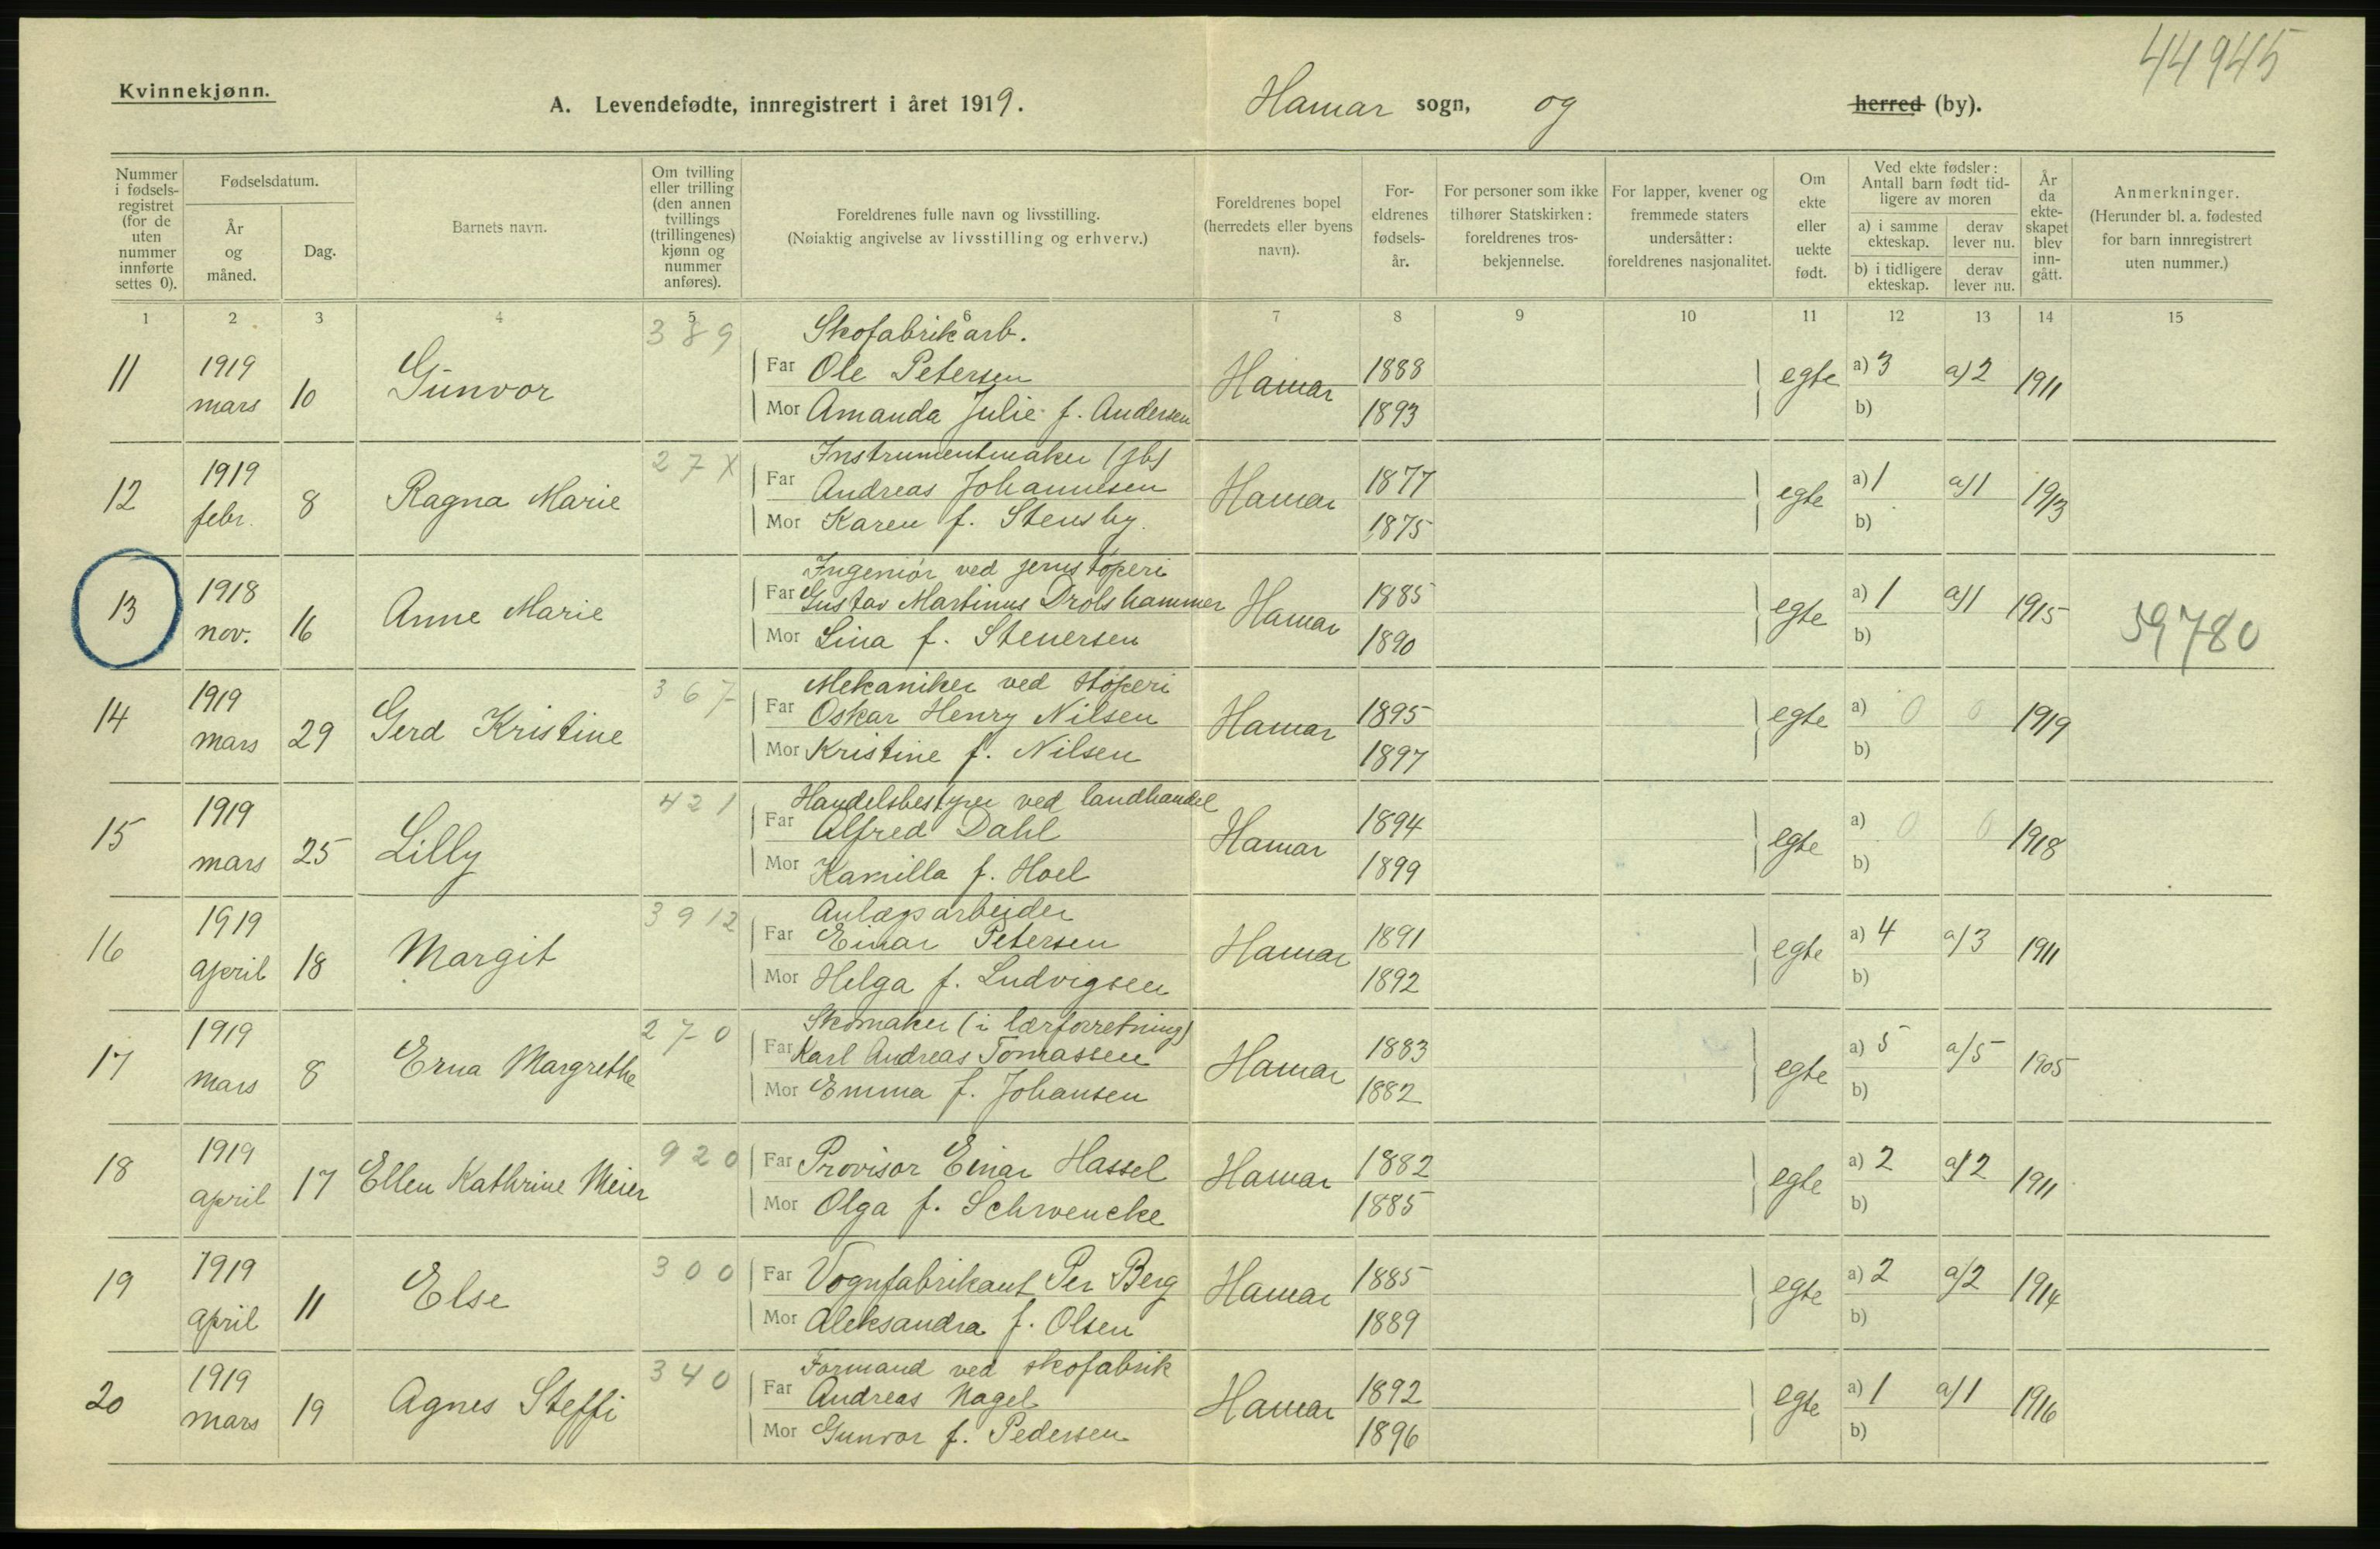 44945
Kvinnekjønn.
A. Levendefødte, innregistrert i året 1919. Hamar sogn, og herred (by).
Nummer i fødsels-registret (for de uten nummer innførte settes 0).
Fødselsdatum.
År og måned.
Dag.
Barnets navn.
Om tvilling eller trilling (den annen tvillings (trillingenes) kjønn og nummer anføres).
Foreldrenes fulle navn og livsstilling.
(Nøiaktig angivelse av livsstilling og erhverv.)
Foreldrenes bopel (herredets eller byens navn).
For-eldrenes fødsels-år.
For personer som ikke tilhører Statskirken: foreldrenes tros-bekjennelse.
For lapper, kvener og fremmede staters undersåtter: foreldrenes nasjonalitet.
Om ekte eller uekte født.
Ved ekte fødsler: Antall barn født tid-ligere av moren
a) i samme ekteskap.
derav lever nu.
b) i tidligere ekteskap.
derav lever nu.
År da ekte-skapet blev inn-gått.
Anmerkninger.
(Herunder bl. a. fødested for barn innregistrert uten nummer.)
1 2 3 4 5 6 7 8 9 10 11 12 13 14 15
389 Skofabrikarb.
11 1919 mars 10 Gunvor Far Ole Petersen Hamar 1888 egte a) 3 a) 2 1911
Mor Amanda Julie f. Andersen 1893 b)
27X Instrumentmaker (jb)
12 1919 febr. 8 Ragna Marie Far Andreas Johannesen Hamar 1877 egte a) 1 a) 1 1913
Mor Karen f. Stensby. 1875 b)
Ingeniør ved jernstøperi
13 1918 nov. 16 Anne Marie Far Gustav Martinus Drolshammer Hamar 1885 egte a) 1 a) 1 1915 59780
Mor Lina f. Stenersen 1890 b)
367 Mekaniker ved støperi
14 1919 mars 29 Gerd Kristine Far Oskar Henry Nilsen Hamar 1895 egte a) 0 0 1919
Mor Kristine f. Nilsen 1897 b)
421 Handelsbestyrer ved landhandel
15 1919 mars 25 Lilly Far Alfred Dahl Hamar 1894 egte a) 0 0 1918
Mor Kamilla f. Hoel 1899 b)
3912 Anlægsarbeider
16 1919 april 18 Margit Far Einar Petersen Hamar 1891 egte a) 4 a) 3 1911
Mor Helga f. Ludvigsen 1892 b)
270 Skomaker (i lærforretning)
17 1919 mars 8 Erna Margrethe Far Karl Andreas Tomassen Hamar 1883 egte a) 5 a) 5 1905
Mor Emma f. Johansen 1882 b)
18 1919 april 17 Ellen Kathrine Meier 920 Far Provisor Einar Hassel Hamar 1882 egte a) 2 a) 2 1911
Mor Olga f. Schwencke 1885 b)
19 1919 april 11 Else 300 Far Vognfabrikant Per Berg Hamar 1885 egte a) 2 a) 2 1914
Mor Aleksandra f. Olsen 1889 b)
340 Formand ved skofabrik
20 1919 mars 19 Agnes Steffi Far Andreas Nagel Hamar 1892 egte a) 1 a) 1 1916
Mor Gunvor f. Pedersen 1896 b)